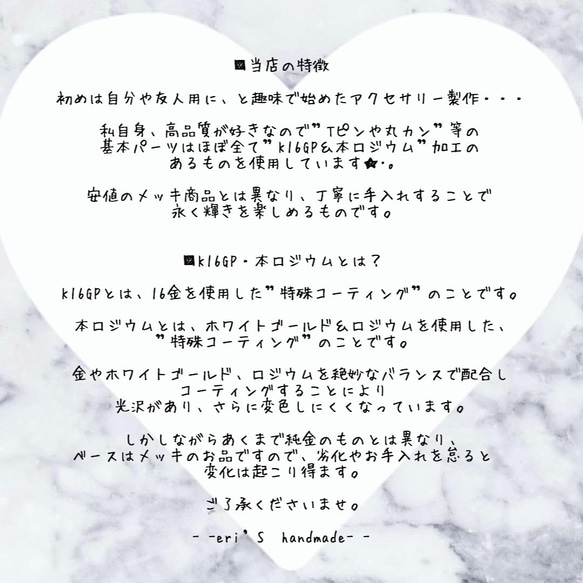 ■当店の特徴
初めは自分や友人用に、と趣味で始めたアクセサリー製作・・・
私自身、高品質が好きなので”Tピンや丸カン”等の
基本パーツはほぼ全て”K16GP&本ロジウム”加工の
あるものを使用しています★・。
安値のメッキ商品とは異なり、丁寧に手入れすることで
永く輝きを楽しめるものです。
■K16GP・本ロジウムとは？
K16GPとは、16金を使用した”特殊コーティング”のことです。
本ロジウムとは、ホワイトゴールド&ロジウムを使用した、
”特殊コーティング”のことです。
金やホワイトゴールド、ロジウムを絶妙なバランスで配合し
コーティングすることにより
光沢があり、さらに変色しにくくなっています。
しかしながらあくまで純金のものとは異なり、
ベースはメッキのお品ですので、劣化やお手入れを怠ると
変化は起こり得ます。
ご了承くださいませ。
- -eri’S handmade- -